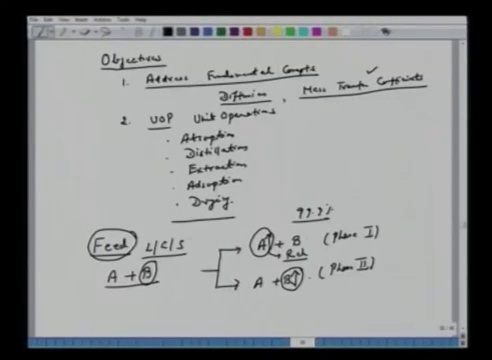 Objectives
1. Address Fundamental Concepts
Diffusion, Mass Transfer Coefficients
2. UOP Unit Operations
. Absorption
. Distillation
. Extraction
. Adsorption
. Drying
99.9%
Feed L/G/S
A + B
A↑ + B (Phase I)
Rich
A + B↑ . (Phase II)